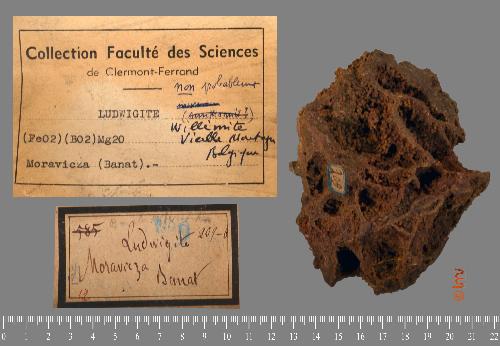 Collection Faculté des Sciences
de Clermont-Ferrand
non probablement
LUDWIGITE
Willemite
(FeO2)(BO2)Mg2O
Vieille Montagne
Belgique
Moravicza (Banat).-
585
Ludwigite
Moravicza
Banat
0 1 2 3 4 5 6 7 8 9 10 11 12 13 14 15 16 17 18 19 20 21 22